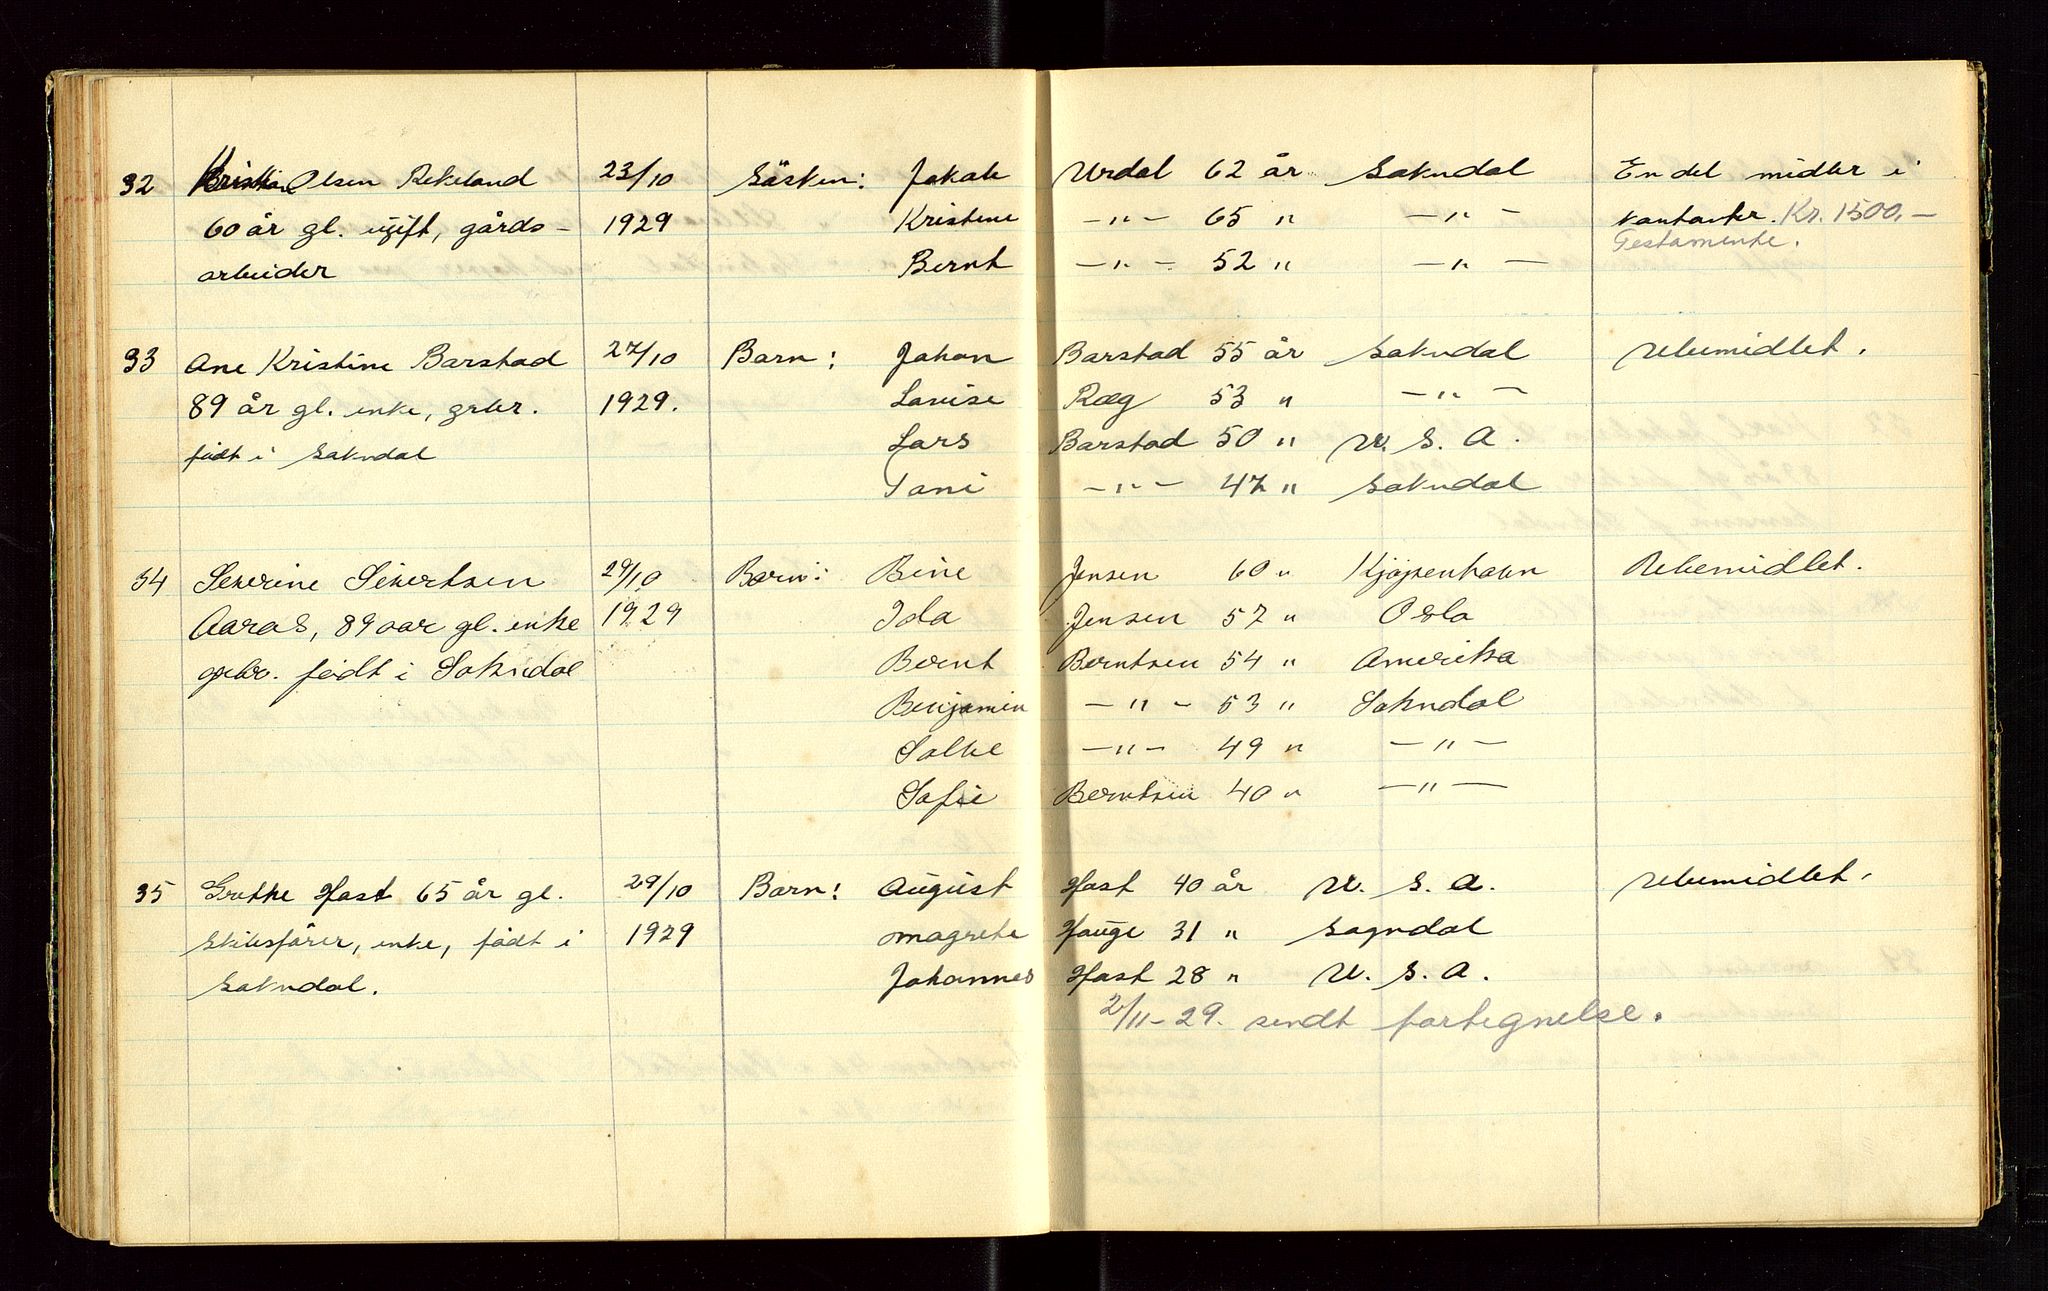 32 Kristian Olsen Rekeland 23/10 Søsken: Jakob Urdal 62 år Sokndal En del midler i
60 år gl. ugift, gårds- 1929 Kristine -"- 65 " -"- kontanter. Kr. 1500.-
Testamente.
arbeider Bernt -"- 52 " -"-
33 Ane Kristine Barstad 27/10 Barn: Johan Barstad 55 år Sokndal Ubemidlet.
89 år gl. enke, grbr. 1929. Lovise Ræg 53 " -"-
født i Sokndal Lars Barstad 50 " U.S.A.
Toni -"- 47 " Sokndal
34 Severine Sivertsen 29/10 Barn: Bine Jensen 60 " Kjøpenhavn Ubemidlet.
Aaros, 89 aar gl. enke 1929 Ida Jensen 57 " Oslo
grbr. født i Sokndal Bernt Berntsen 54 " Amerika
Benjamin -"- 53 " Sokndal
Salve -"- 49 " -"-
Sofie Berntsen 40 " -"-
35 Grethe Hast 65 år gl. 29/10 Barn: August Hast 40 år U.S.A. Ubemidlet.
skibsfører, enke, født i 1929 Magrete Hauge 31 " Sogndal
Sokndal. Johannes Hast 28 " U.S.A.
2/11-29. sendt fortegnelse.